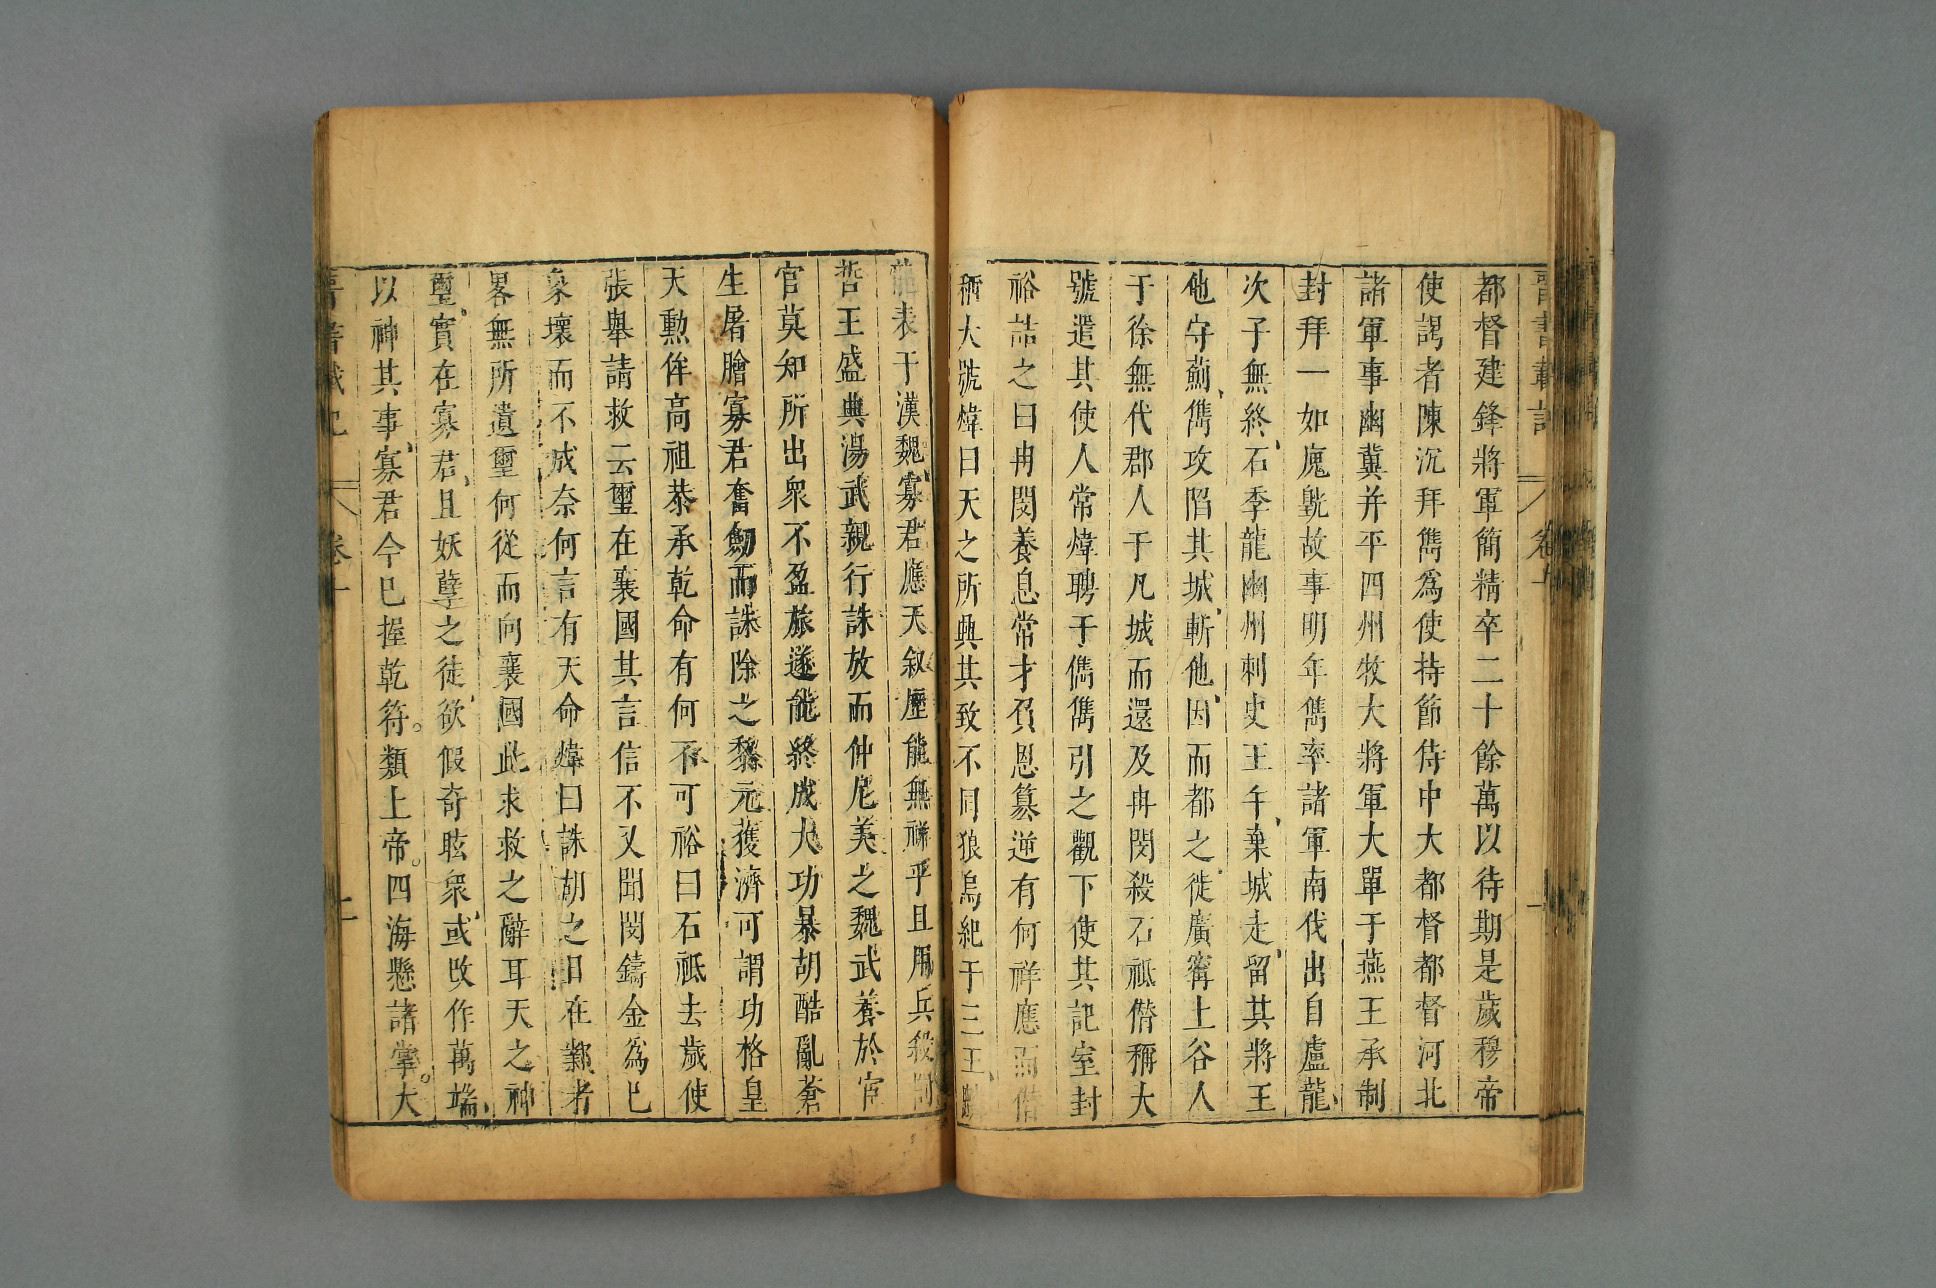 晉書載記 卷十 一
都督建鋒將軍簡精卒二十餘萬以待期是歲穆帝
使謁者陳沉拜儁爲使持節侍中大都督都督河北
諸軍事幽冀并平四州牧大將軍大單于燕王承制
封拜一如廆皝故事明年儁率諸軍南伐出自盧龍
次于無終石季龍幽州刺史王午棄城走留其將王
他守薊儁攻陷其城斬他因而都之徙廣甯上谷人
于徐無代郡人于凡城而還及冉閔殺石祗僭稱大
號遣其使人常煒聘于儁儁引之觀下使其記室封
裕詰之曰冉閔養息常才負恩簒逆有何祥應而僭
稱大號煒曰天之所興其致不同狼烏紀于三王
龍表于漢魏寡君應天叙曆能無祥乎且用兵殺
哲王盛典湯武親行誅放而仲尼美之魏武養於宦
官莫知所出衆不盈旅遂能終成大功暴胡酷亂蒼
生屠膾寡君奮劒而誅除之黎元獲濟可謂功格皇
天勲侔高祖恭承乾命有何不可裕曰石祗去歲使
張舉請救云璽在襄國其言信不又聞閔鑄金爲巳
象壞而不成奈何言有天命煒曰誅胡之日在鄴者
畧無所遺璽何從而向襄國此求救之辭耳天之神
璽實在寡君且妖孽之徒欲假奇眩衆或改作萬端
以神其事寡君今巳握乾符類上帝四海懸諸掌大
晉書載記 卷十